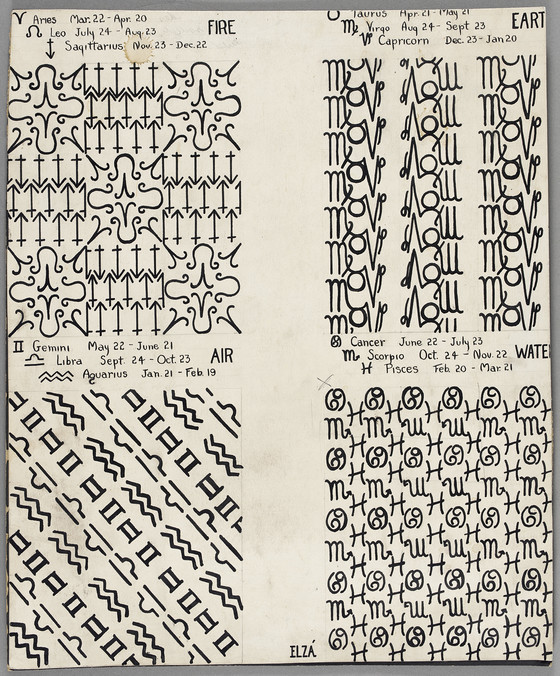 ♈ Aries Mar. 22 - Apr. 20
♌ Leo July 24 - Aug. 23
FIRE
♐ Sagittarius Nov. 23 - Dec. 22
♉ Taurus Apr. 21 - May 21
♍ Virgo Aug 24 - Sept 23
EART
♑ Capricorn Dec. 23 - Jan 20
♊ Gemini May 22 - June 21
♎ Libra Sept. 24 - Oct. 23
AIR
♒ Aquarius Jan. 21 - Feb. 19
♋ Cancer June 22 - July 23
♏ Scorpio Oct. 24 - Nov. 22
WATE
♓ Pisces Feb. 20 - Mar. 21
ELZÁ